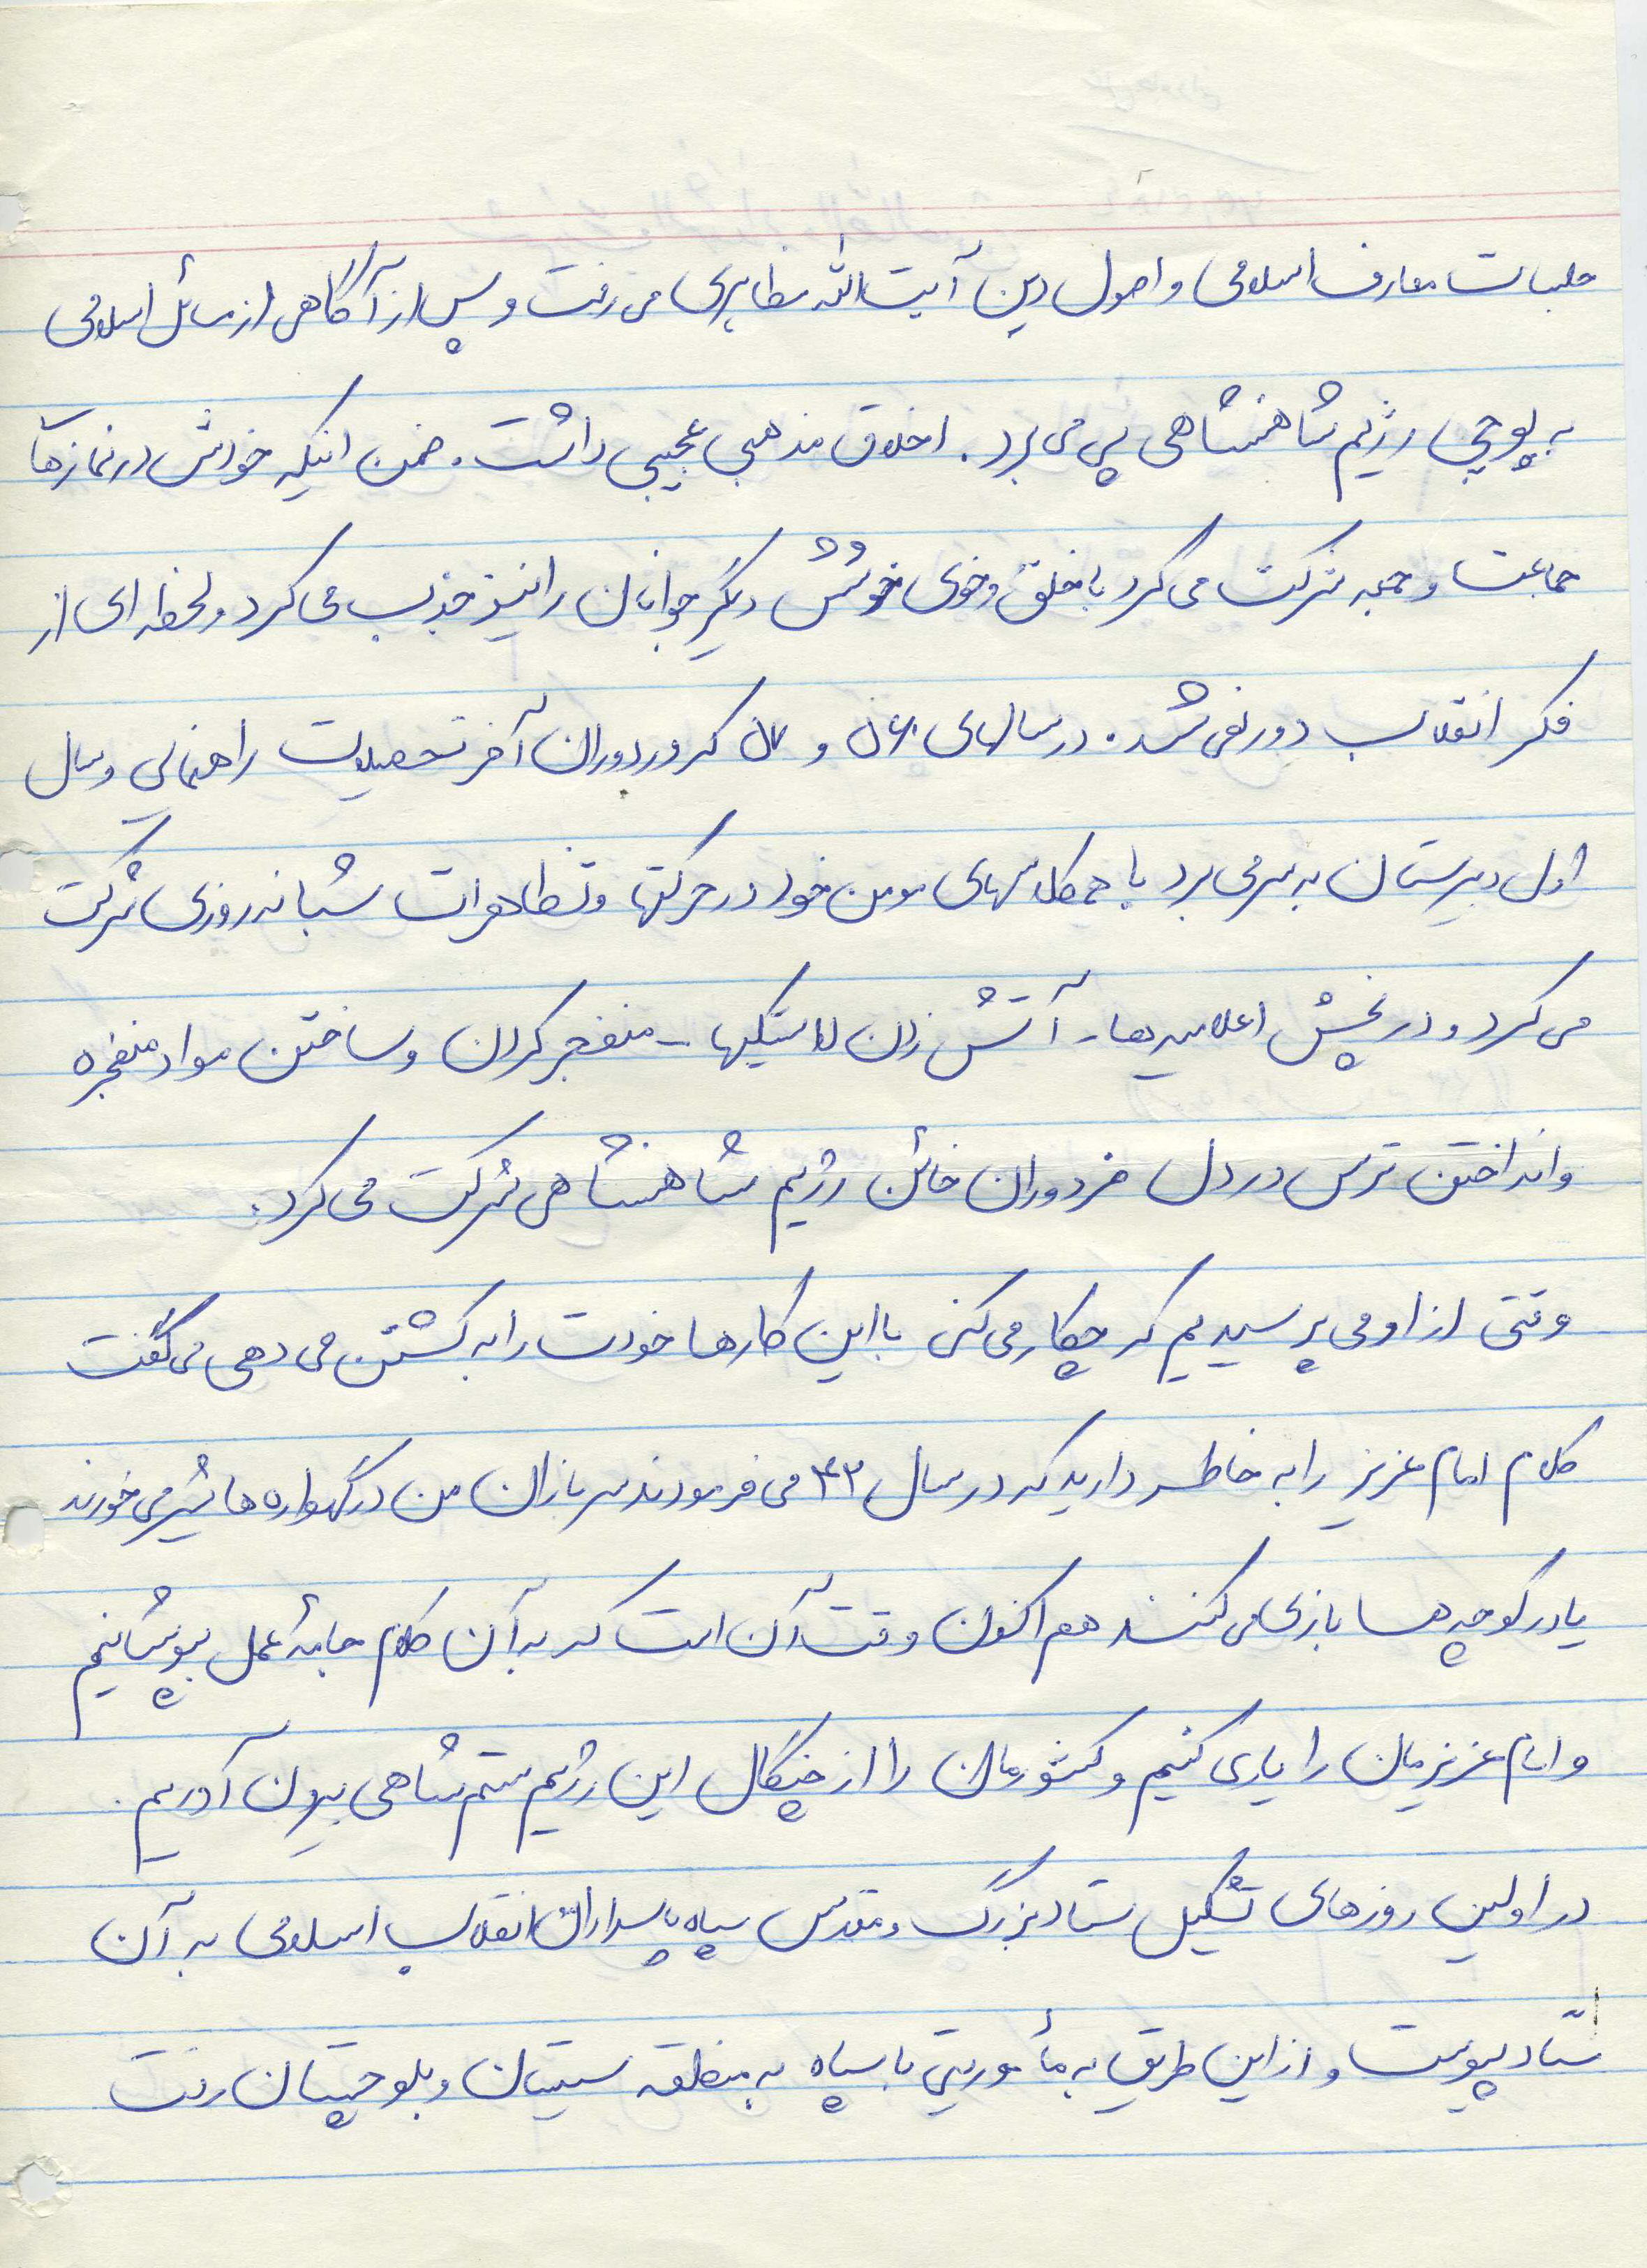 جلسات معارف اسلامی و اصول دین آیت الله مظاهری می رفت و پس از آگاهی از مسائل اسلامی
به پوچی رژیم شاهنشاهی پی می برد . اخلاق مذهبی عجیبی داشت . ضمن اینکه خودش در نمازهای
جماعت و جمعه شرکت می کرد با خلق و خوی خوشش دیگر جوانان را نیز جذب می کرد و لحظه ای از
فکر انقلاب دور نمی شد . در سالهای ۵۶ و ۵۷ که در دوران آخر تحصیلات راهنمایی و سال
اول دبیرستان به سر می برد با همکلاسهای مومن خود در حرکتها و تظاهرات شبانه روزی شرکت
می کرد و در پخش اعلامیه ها - آتش زدن لاستیکها - منفجر کردن و ساختن مواد منفجره
و انداختن ترس در دل مزدوران خائن رژیم شاهنشاهی شرکت می کرد .
وقتی از او می پرسیدیم که چکار می کنی با این کارها خودت را به کشتن می دهی می گفت
کلام امام عزیز را به خاطر دارید که در سال ۴۲ می فرمودند سربازان من در گهواره ها شیر می خورند
یا در کوچه ها بازی می کنند هم اکنون وقت آن است که به آن کلام جامۀ عمل بپوشانیم
و امام عزیزمان را یاری کنیم و کشورمان را از چنگال این رژیم ستم شاهی بیرون آوریم .
در اولین روزهای تشکیل ستاد بزرگ و مقدس سپاه پاسداران انقلاب اسلامی به آن
ستاد پیوست و از این طریق به مأموریتی با سپاه به منطقه سیستان و بلوچستان رفت